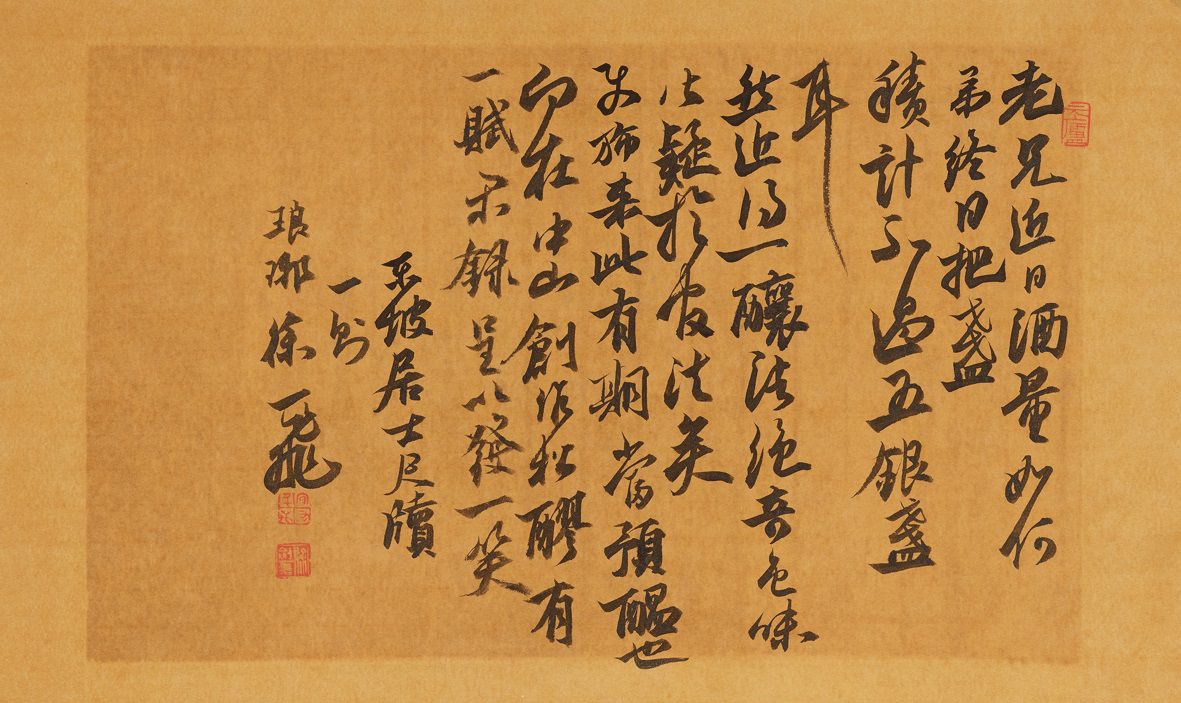 老兄近日酒量如何
弟終日把盞
積計不過五銀盞
耳
然近得一釀法絕奇色味
皆疑於官法矣
使旆来此有期當預醞也
向在中山創作松醪有
一賦錄呈以發一笑
東坡居士尺牘
一則
琅琊徐一飛